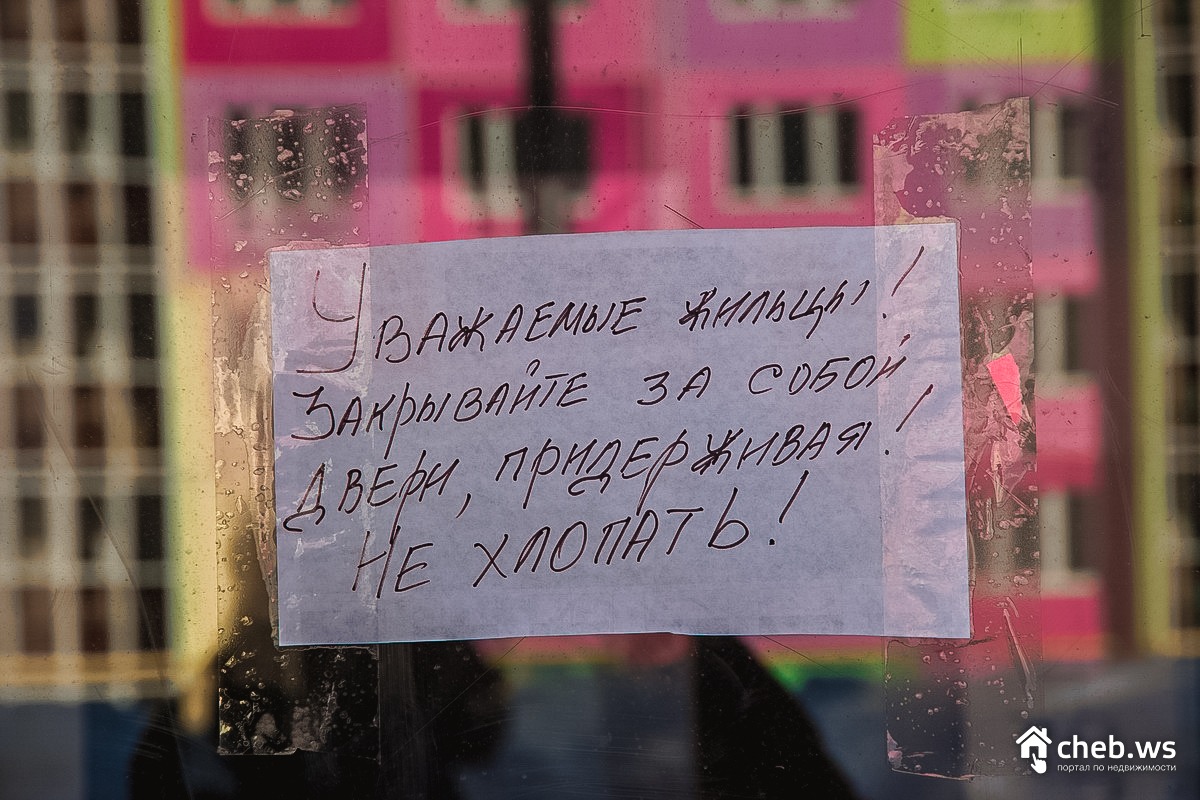 Уважаемые жильцы!
Закрывайте за собой
двери, придерживая!
Не хлопать!
cheb.ws
портал по недвижимости